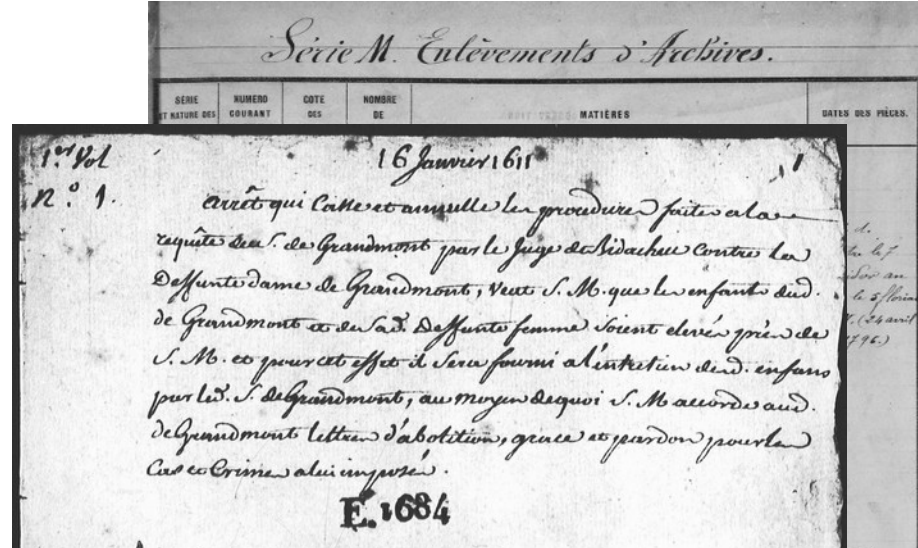 Série M. Enlèvements d'Archives.
SÉRIE
ET NATURE DES
NUMÉRO
COURANT
COTE
DES
NOMBRE
DE
MATIÈRES
DATES DES PIÈCES.
1er Vol
16 Janvier 1611
1
N.º 1.
arrêt qui Casse et annulle les procedures faites a la
requête du S. de Grandmont par le Juge de Bidache Contre la
Deffunte dame de Grandmont, veut S. M. que les enfants dud.
de Grandmont et de sad. Deffunte femme Soient elevés près de
S. M. et pour cet effet il Sera fourni a l'entretien desd. enfans
par led. S. de Grandmont, au moyen de quoi S. M. accorde aud.
de Grandmont lettres d'abolition, grace et pardon pour les
Cas et Crimes a lui imposés.
E. 1684
le 7
an
le 5 floréal
(24 avril
1796.)